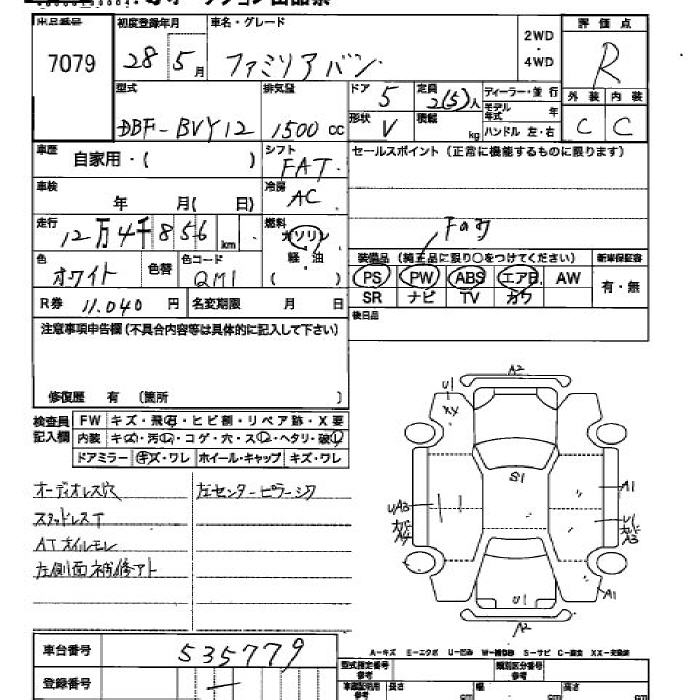 7079
初度登録年月
28 5月
車名・グレード
ファミリアバン
2WD
・
4WD
評価点
R
外装 内装
C C
型式
DBF-BVY12
排気量
1500 cc
ドア 5
定員 2(5)人
ディーラー・並行
モデル年式 年
形状 V
積載 kg
ハンドル 左・右
車歴 自家用・( )
シフト FAT
セールスポイント(正常に機能するものに限ります)
車検 年 月( 日)
冷房 AC
走行 12万4千856 km
燃料 ガソリン
軽・油
( )
Fのみ
色 ホワイト 色替
色コード QM1
装備品(純正品に限り○をつけてください)
新車保証書
PS PW ABS エアB AW
SR ナビ TV カワ
有・無
R券 11,040 円
名変期限 月 日
後日品
注意事項申告欄(不具合内容等は具体的に記入して下さい)
修復歴 有 (箇所 )
検査員記入欄
FW キズ・飛石・ヒビ割・リペア跡・X要
内装 キズ・汚れ・コゲ・穴・スレ・ヘタリ・破れ
ドアミラー キズ・ワレ ホイール・キャップ キズ・ワレ
オーディオレス穴
スタッドレスT
ATオイルモレ
左側面補修アト
左センターピラーシワ
A2
U1
XX
S1
UA3
A1
U1
A3
A1
U1
A2
A-キズ E-エクボ U-凹み W-補修跡 S-サビ C-腐食 XX-交換済
車台番号 535779
登録番号
型式指定番号
参考
類別区分番号
参考
長さ cm
幅 cm
高さ cm